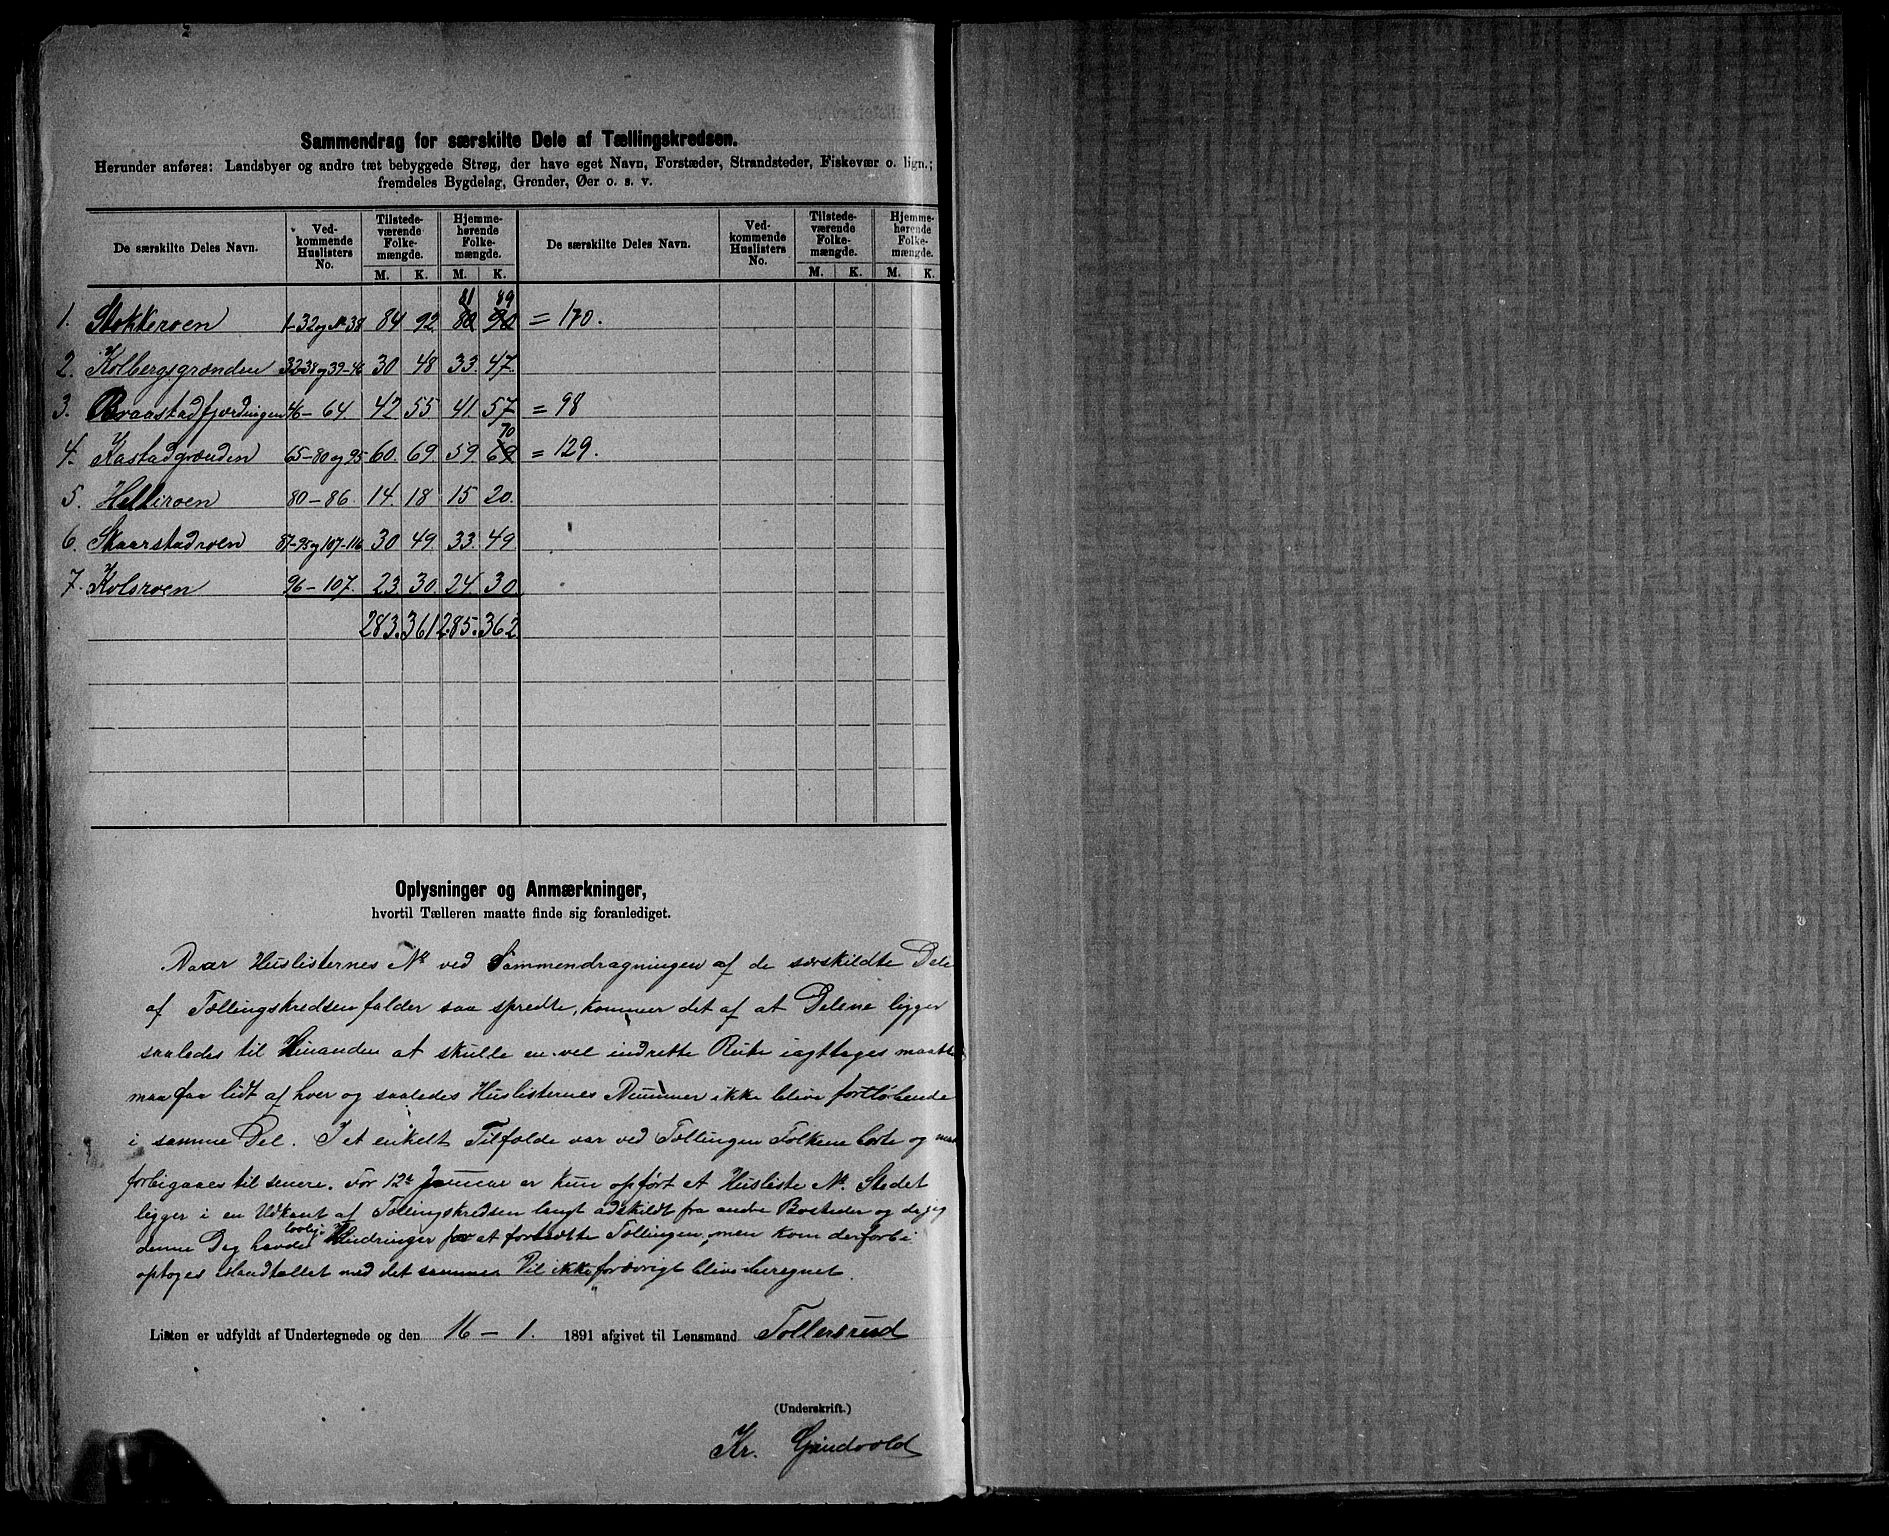 Sammendrag for særskilte Dele af Tællingskredsen.
Herunder anføres: Landsbyer og andre tæt bebyggede Strøg, der have eget Navn, Forstæder, Strandsteder, Fiskevær o. lign.;
fremdeles Bygdelag, Grender, Øer o. s. v.
De særskilte Deles Navn. Ved-kommende Huslisters No. Tilstede-værende Folke-mængde. Hjemme-hørende Folke-mængde. De særskilte Deles Navn. Ved-kommende Huslisters No. Tilstede-værende Folke-mængde. Hjemme-hørende Folke-mængde.
M. K. M. K. M. K. M. K.
81 89
1. Stokkeroen 1-32 og № 38 84 92 80 90 = 170.
2. Kolbergsgrænden 32-38 og 39-46 30 48 33. 47.
3. Braastadfjordingen 46-64. 42 55 41. 57 = 98
70
4. Kastadgrænden 65-80 og 95 60. 69. 59. 69 = 129.
5. Helliroen 80-86. 14. 18 15 20.
6. Skaarstadroen 87-95 og 107-116 30 49. 33. 49
7. Kolsroen 96-107. 23. 30. 24. 30
283. 361 285. 362
Oplysninger og Anmærkninger,
hvortil Tælleren maatte finde sig foranlediget.
Naar Huslisternes № ved Sammendragningen af de særskildte Dele
af Tællingskredsen falder saa spredte, kommer det af at Delene ligger
saaledes til Hinanden at skulle en vel indrette Rute iagttages maatte
man faa lidt af hver og saaledes Huslisternes Nummer ikke blive fortløbende
i samme Del. I et enkelt Tilfælde var ved Tællingen Folkene borte og
forbigaaes til senere. For 12te Januar er kun opført et Husliste №. Stedet
ligger i en Udkant af Tællingskredsen langt adskildt fra andre Bosteder og da jeg
denne Dag havde lovlige Hindringer for at fortsætte Tællingen, men kom derforbi
optoges Mandtallet med det samme. Vil ikke forøvrigt blive beregnet.
Listen er udfyldt af Undertegnede og den 16 - 1. 1891 afgivet til Lensmand Tollersrud
(Underskrift.)
Kr. Grindvold